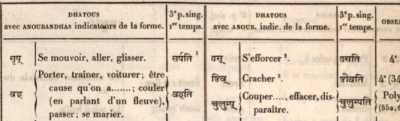 DHATOUS
avec ANOUBANDHAS indicateurs de la forme.
3e p. sing.
1er temps.
DHATOUS
avec ANOUB. indic. de la forme.
3e p. sing.
1er temps.
OBSE
सृप् Se mouvoir, aller, glisser. सर्पति 1
Porter, traîner, voiturer; être
cause qu'on a......; couler
वह (en parlant d'un fleuve), वहति
passer; se marier.
S'efforcer 2.
Cracher 3. 4e (34
चुलुम्प् Couper...., effacer, dis-
paraître. चुलुम्पति Poly
(55a, 6